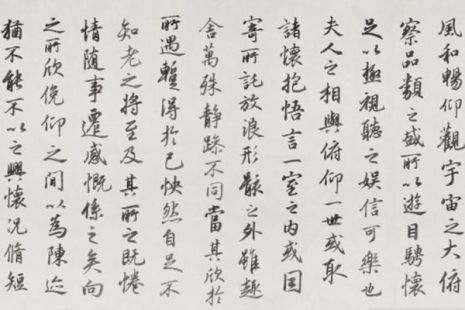 風和暢仰觀宇宙之大俯
察品類之盛所以遊目騁懷
足以極視聽之娛信可樂也
夫人之相與俯仰一世或取
諸懷抱悟言一室之內或因
寄所託放浪形骸之外雖趣
舍萬殊静躁不同當其欣於
所遇蹔得於己怏然自足不
知老之將至及其所之既惓
情隨事遷感慨係之矣向
之所欣俛仰之間以為陳迹
猶不能不以之興懷況脩短